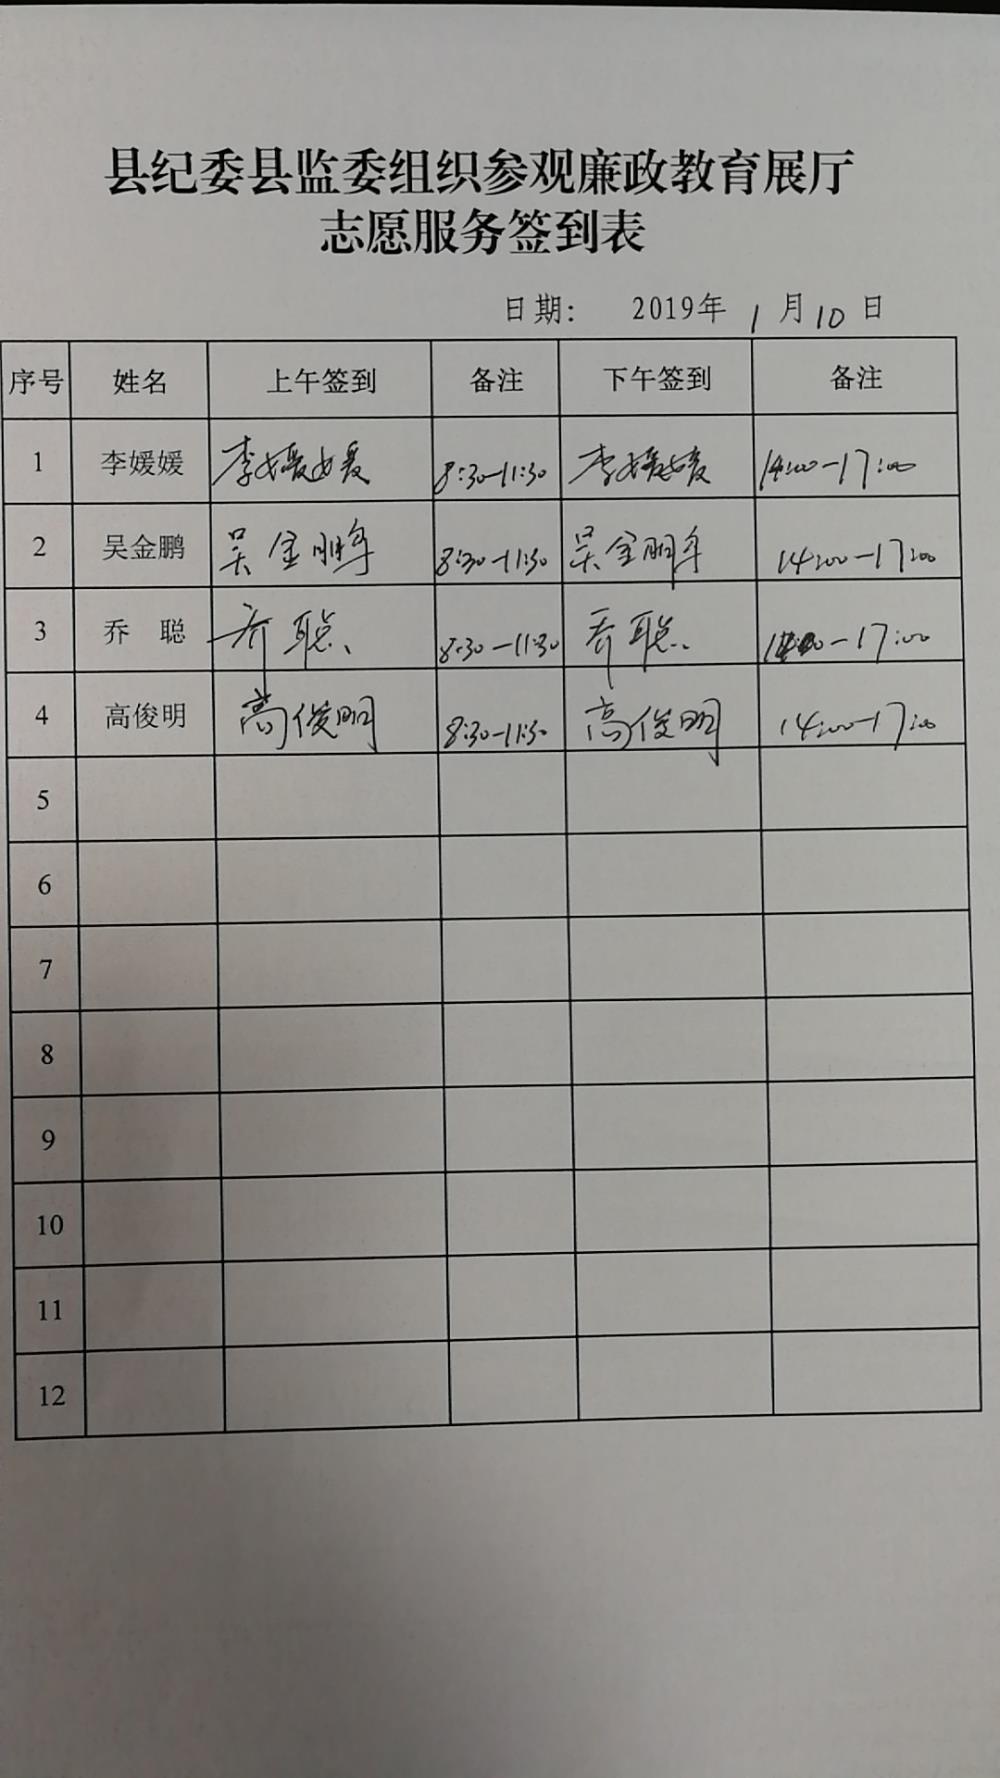 县纪委县监委组织参观廉政教育展厅
志愿服务签到表
日期： 2019年 1 月 10 日
序号 姓名 上午签到 备注 下午签到 备注
1 李媛媛 李媛媛 8:30-11:30 李媛媛 14:00-17:00
2 吴金鹏 吴金鹏 8:30-11:30 吴金鹏 14:00-17:00
3 乔 聪 乔聪 8:30-11:30 乔聪 14:00-17:00
4 高俊明 高俊明 8:30-11:30 高俊明 14:00-17:00
5
6
7
8
9
10
11
12